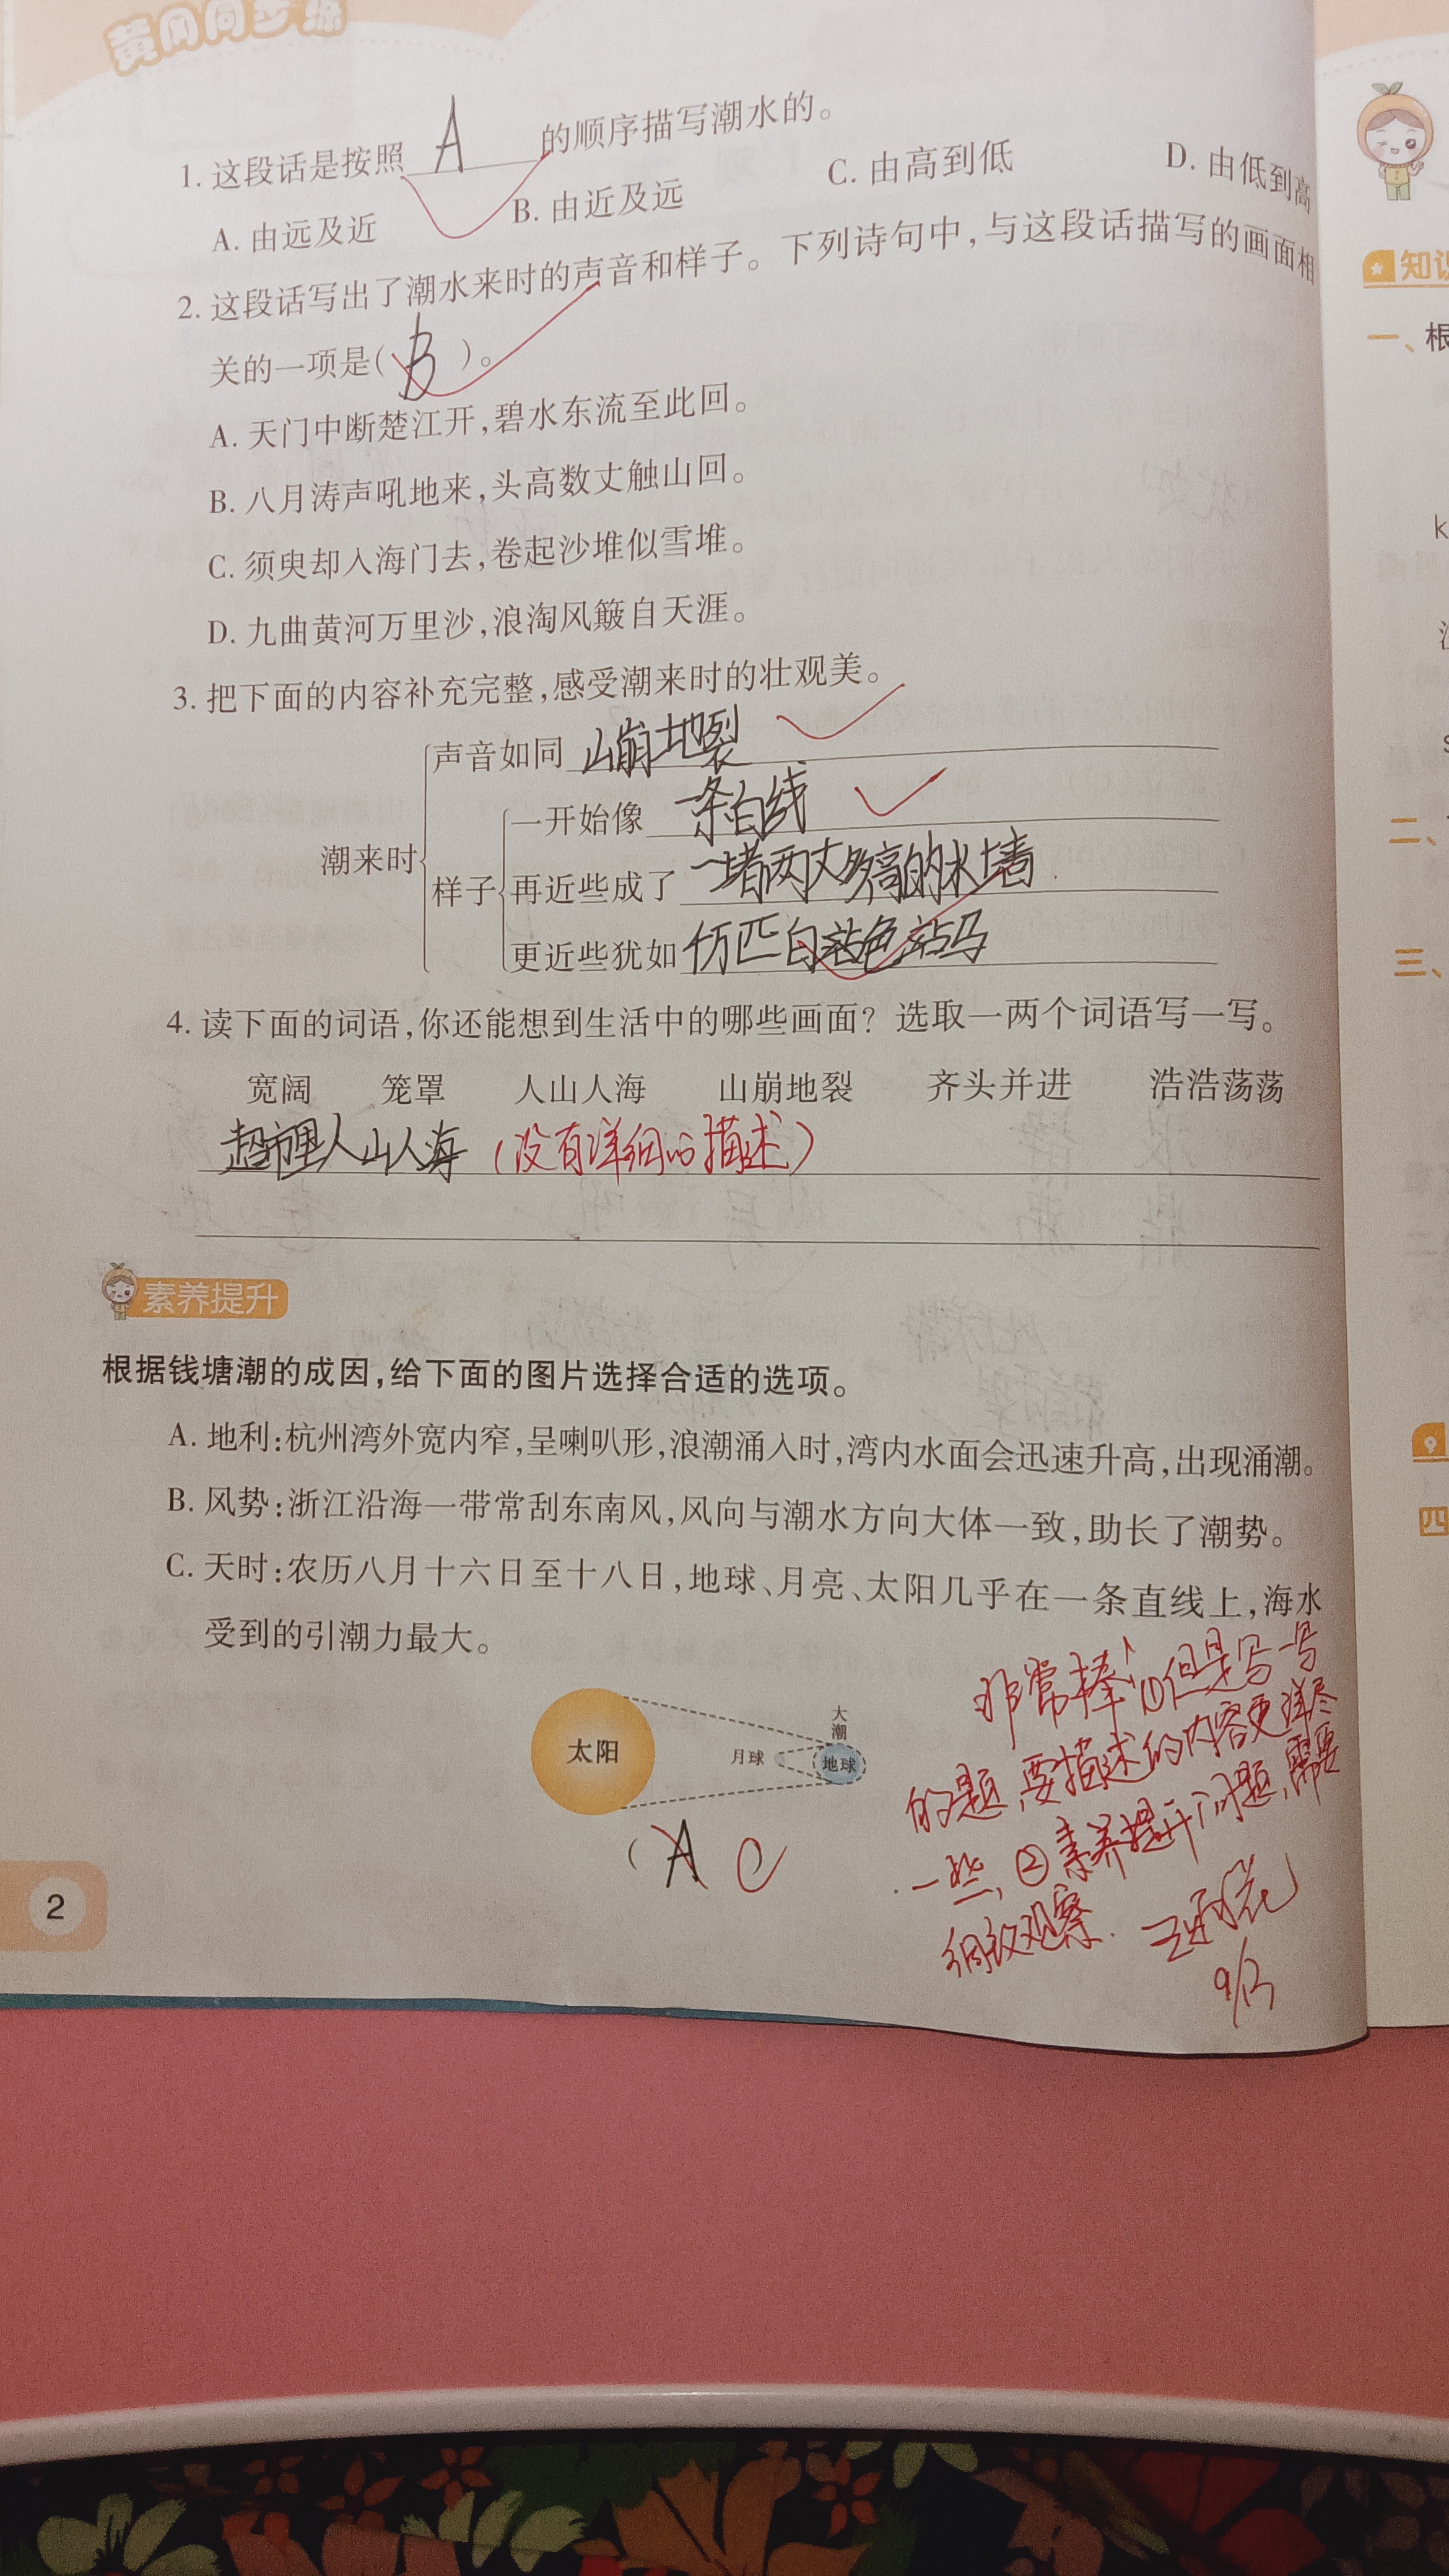 黄冈同步练
1. 这段话是按照 A 的顺序描写潮水的。
A. 由远及近 B. 由近及远 C. 由高到低 D. 由低到高
2. 这段话写出了潮水来时的声音和样子。下列诗句中,与这段话描写的画面相
关的一项是( B )。
A. 天门中断楚江开,碧水东流至此回。
B. 八月涛声吼地来,头高数丈触山回。
C. 须臾却入海门去,卷起沙堆似雪堆。
D. 九曲黄河万里沙,浪淘风簸自天涯。
3. 把下面的内容补充完整,感受潮来时的壮观美。
声音如同 山崩地裂
一开始像 一条白线
潮来时
样子
再近些成了 一堵两丈多高的水墙
更近些犹如
4. 读下面的词语,你还能想到生活中的哪些画面? 选取一两个词语写一写。
宽阔 笼罩 人山人海 山崩地裂 齐头并进 浩浩荡荡
超市里人山人海 (没有详细的描述)
素养提升
根据钱塘潮的成因,给下面的图片选择合适的选项。
A. 地利:杭州湾外宽内窄,呈喇叭形,浪潮涌入时,湾内水面会迅速升高,出现涌潮。
B. 风势:浙江沿海一带常刮东南风,风向与潮水方向大体一致,助长了潮势。
C. 天时:农历八月十六日至十八日,地球、月亮、太阳几乎在一条直线上,海水
受到的引潮力最大。
太阳
月球
大潮
地球
( A C
非常棒!①但是写一写
的题,要描述的内容更详尽
一些,②素养提升问题,需要
细致观察.
9/13
2
知识
一、根
二、
三、
四